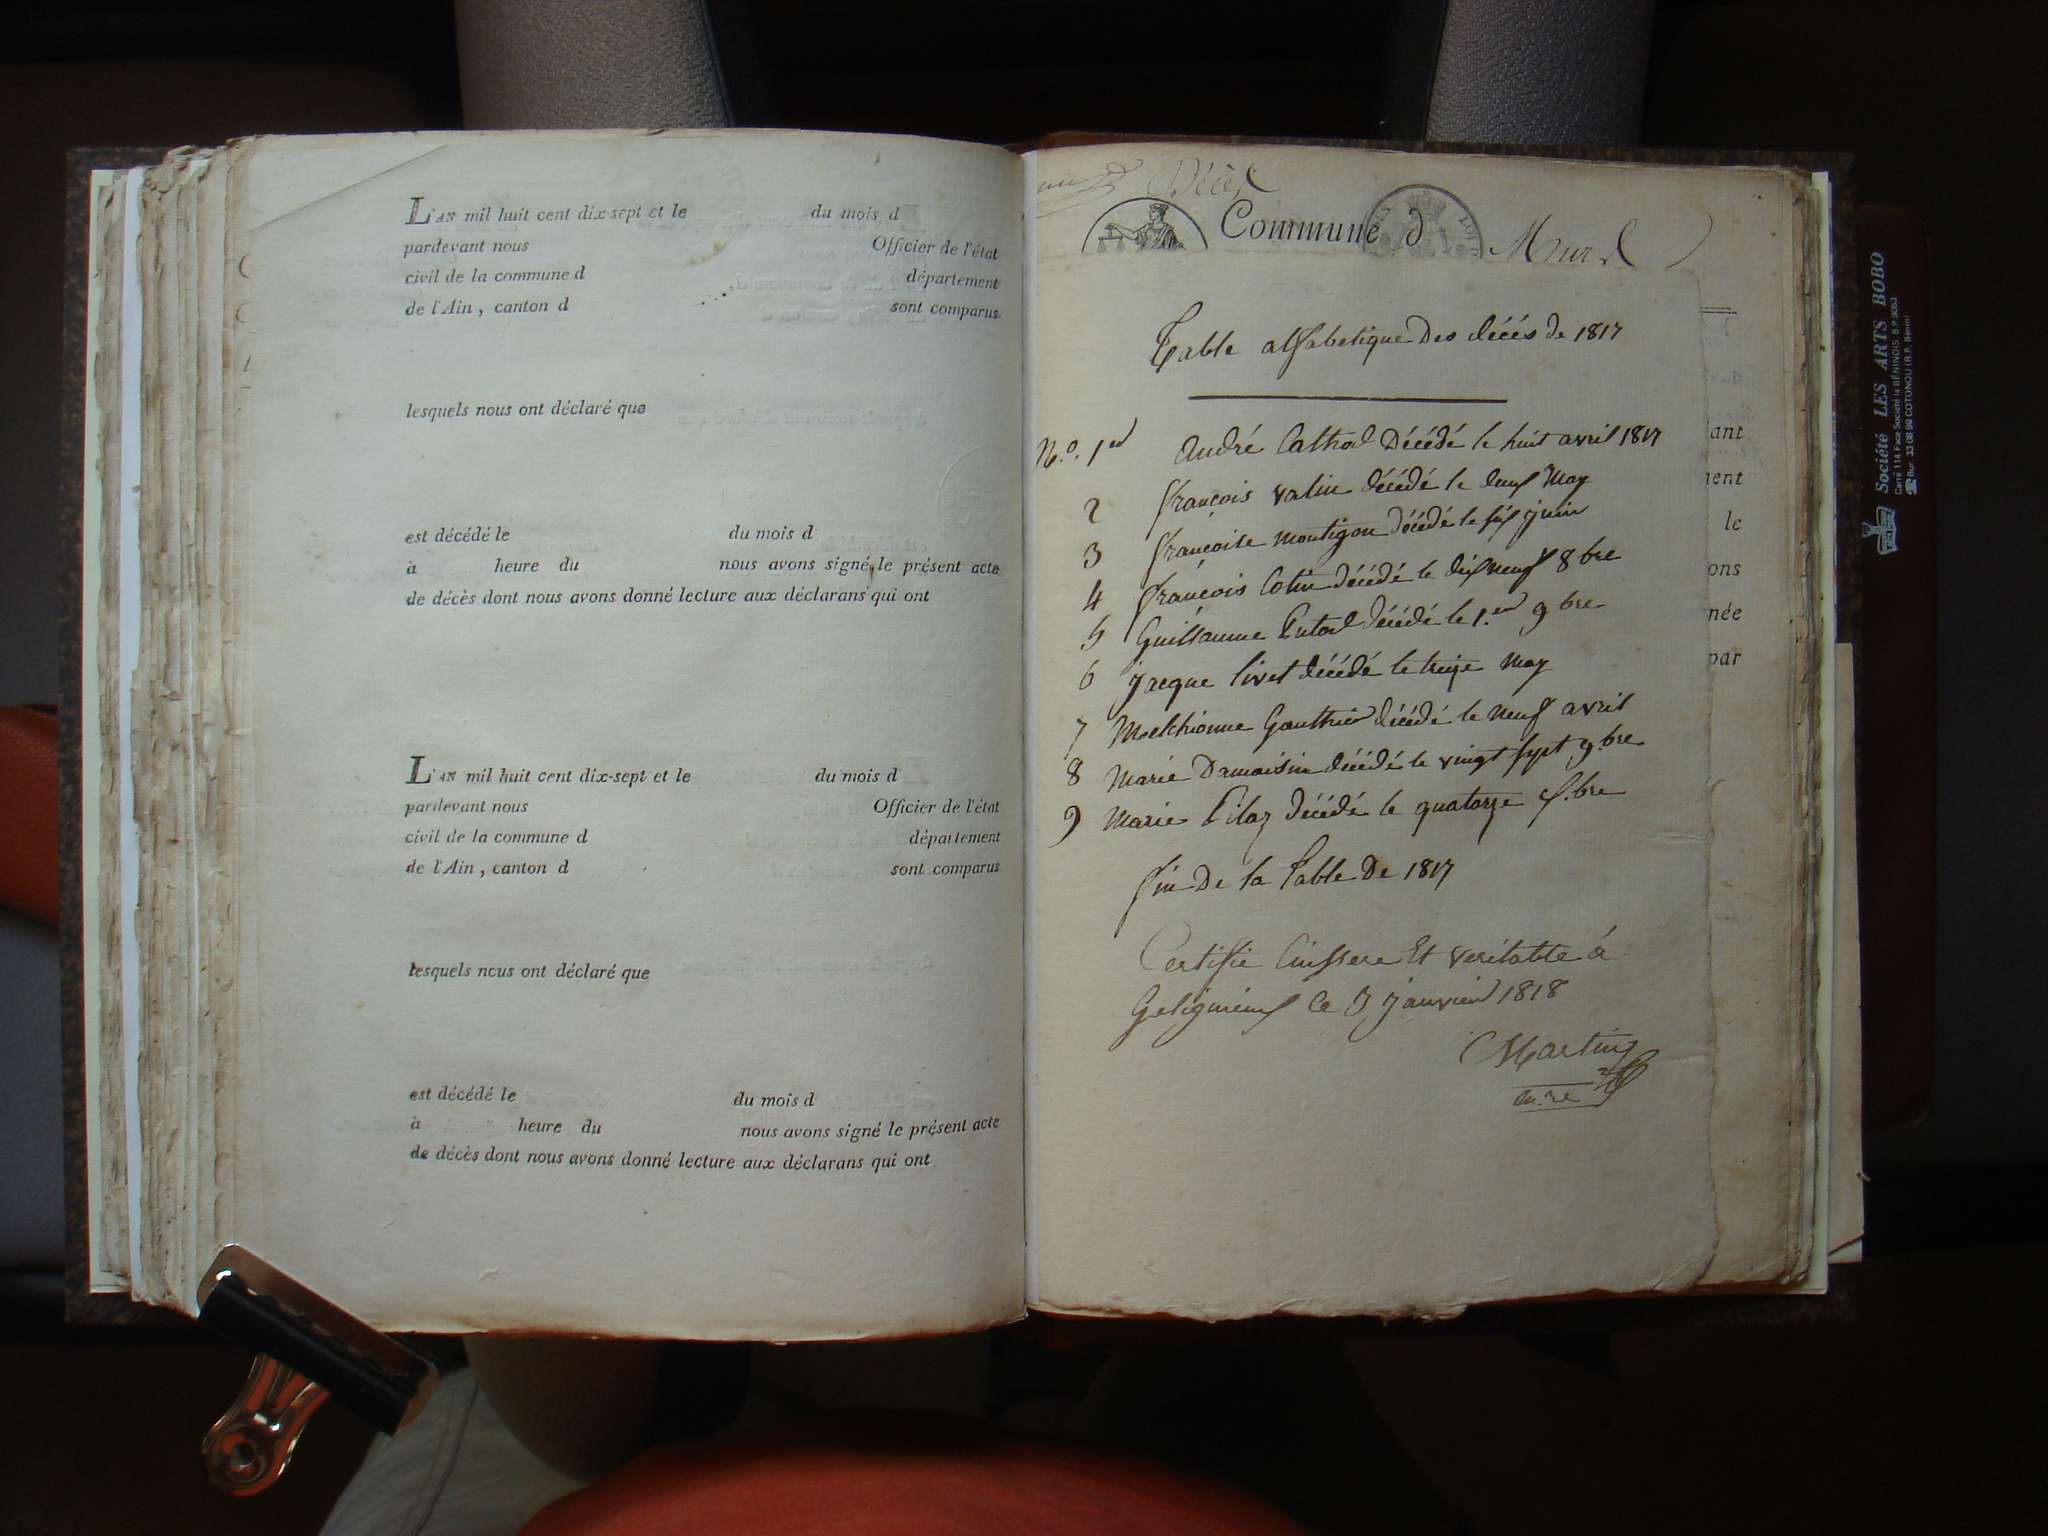 L'AN mil huit cent dix-sept et le du mois d
pardevant nous Officier de l'état
civil de la commune d département
de l'Ain, canton d sont comparus
lesquels nous ont déclaré que
est décédé le du mois d
à heure du nous avons signé le présent acte
de décès dont nous avons donné lecture aux déclarans qui ont
L'AN mil huit cent dix-sept et le du mois d
pardevant nous Officier de l'état
civil de la commune d département
de l'Ain, canton d sont comparus
lesquels nous ont déclaré que
est décédé le du mois d
à heure du nous avons signé le présent acte
de décès dont nous avons donné lecture aux déclarans qui ont
Décès
Commune d
Table alfabetique Des décés de 1817
N.o 1er André décédé le huit avril 1817
2 françois valin décédé le deux May
3 françoise montigon décédé le six juin
4 françois Cotin décédé le dix neuf 8bre
5 Guillaume décédé le 1.er 9bre
6 jacque livet décédé le treize May
7 Melchionne Gauthier décédé le neuf avril
8 Marie Damaisin décédé le vingt sept 9.bre
9 Marie Pilaz décédé le quatorze
fin De la table De 1817
Certifie sinssere Et veritable á
Gelignieux Ce janvier 1818
Martin
iant
ment
le
ons
née
par
Société LES ARTS BOBO
Carré 114 Face Société la BÉNINOIS B.P. 9053
Bur. 33-06 99 COTONOU (R.P. Bénin)